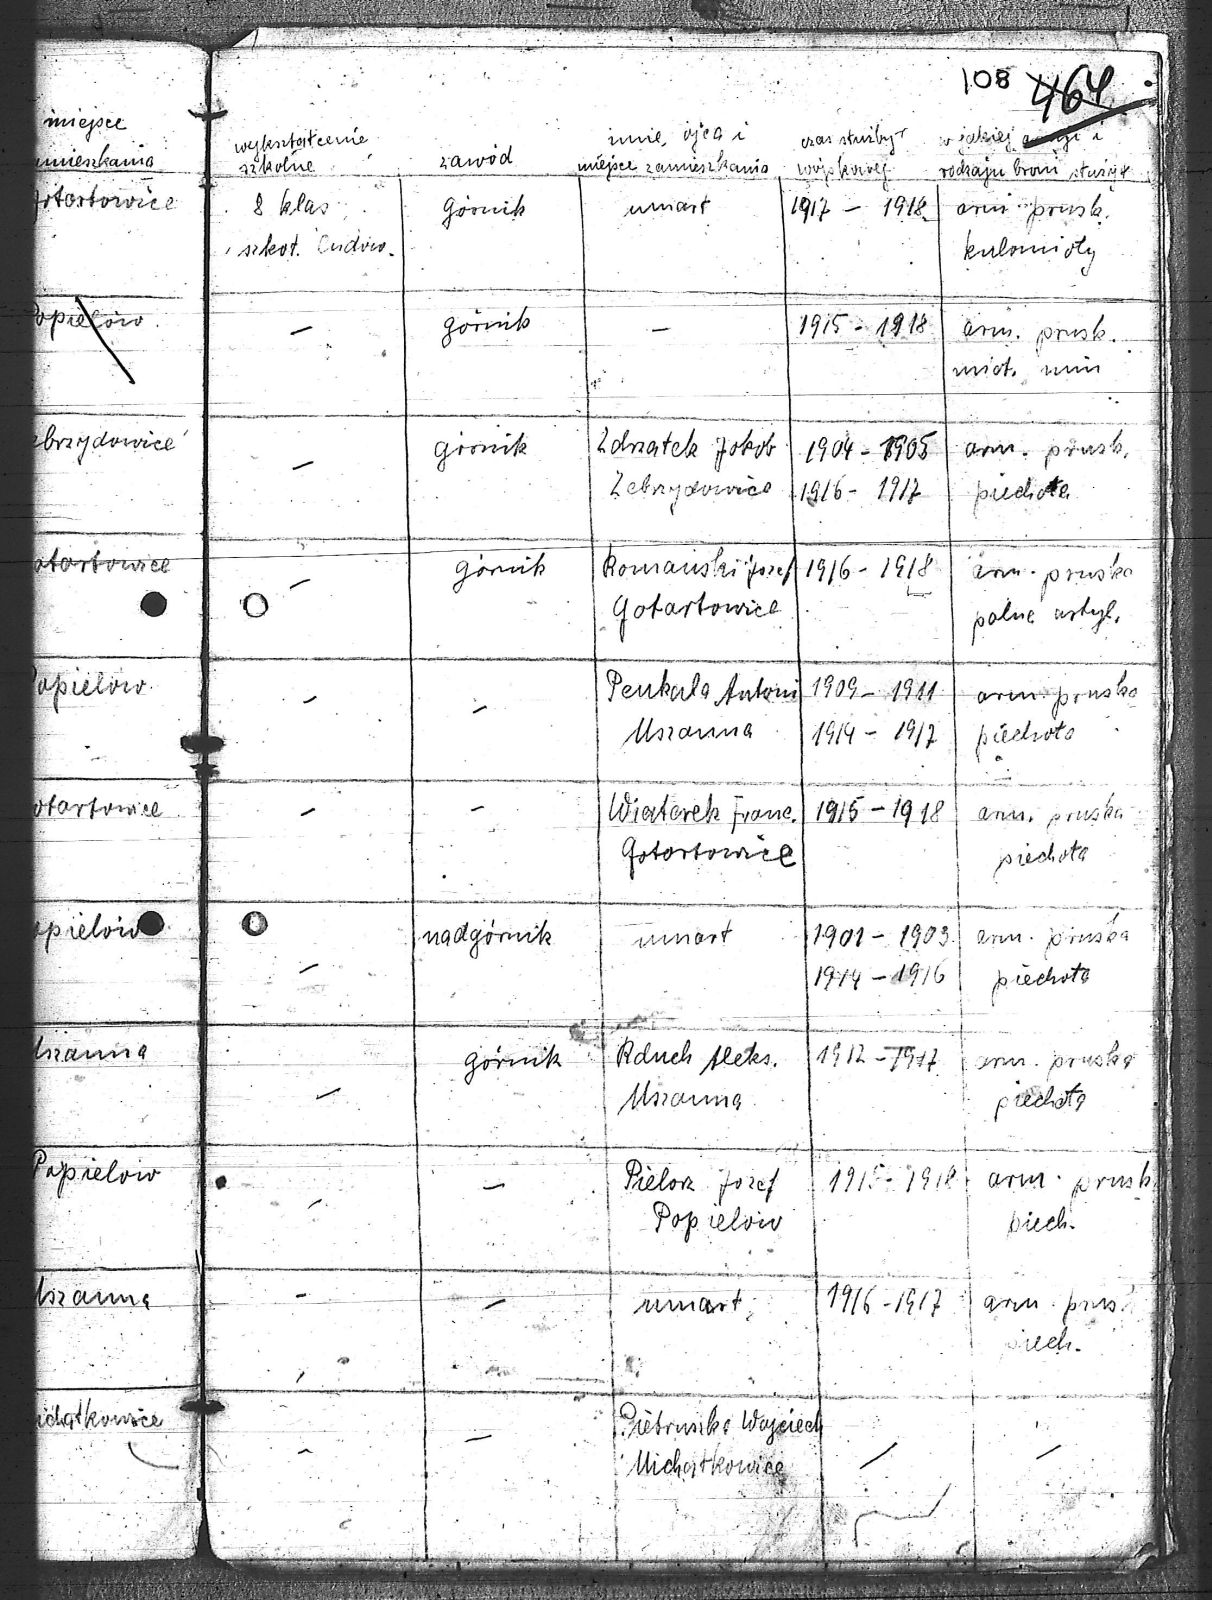 108 464
miejsce
zamieszkania
wykształcenie
szkolne
zawód
imię ojca i
miejsce zamieszkania
czas służby
wojskowej
w jakiej armji i
rodzaju broni służył
Gotartowice
8 klas
szkoł. Ludow.
górnik
umarł
1917 - 1918
arm prusk.
kulomioty
Popielów
—
górnik
—
1915 - 1918
arm. prusk.
miot. min
ebrzydowice
—
górnik
Zdrzałek Jakób
Zebrzydowice
1904 - 1905
1916 - 1917
arm. prusk.
piechota
otartowice
—
górnik
Romański Jozef
Gotartowice
1916 - 1918
arm. pruska
polna artyl.
Popielów
—
—
Penkala Antoni
Mszanna
1909 - 1911
1914 - 1917
arm. pruska
piechota
otartowice
—
—
Wiatarek Franc.
Gotartowice
1915 - 1918
arm. pruska
piechota
opielów
—
nadgórnik
umarł
1901 - 1903
1914 - 1916
arm. pruska
piechota
Mszanna
—
górnik
Rduch Aleks.
Mszanna
1912 - 1917
arm. pruska
piechota
Popielów
—
—
Pielorz Jozef
Popielów
1915 - 1918
arm. prusk
piech.
Mszanna
—
—
umarł
1916 - 1917
arm prus
piech.
ichałkowice
—
—
Pietruszka Wojciech
Michałkowice
—
—